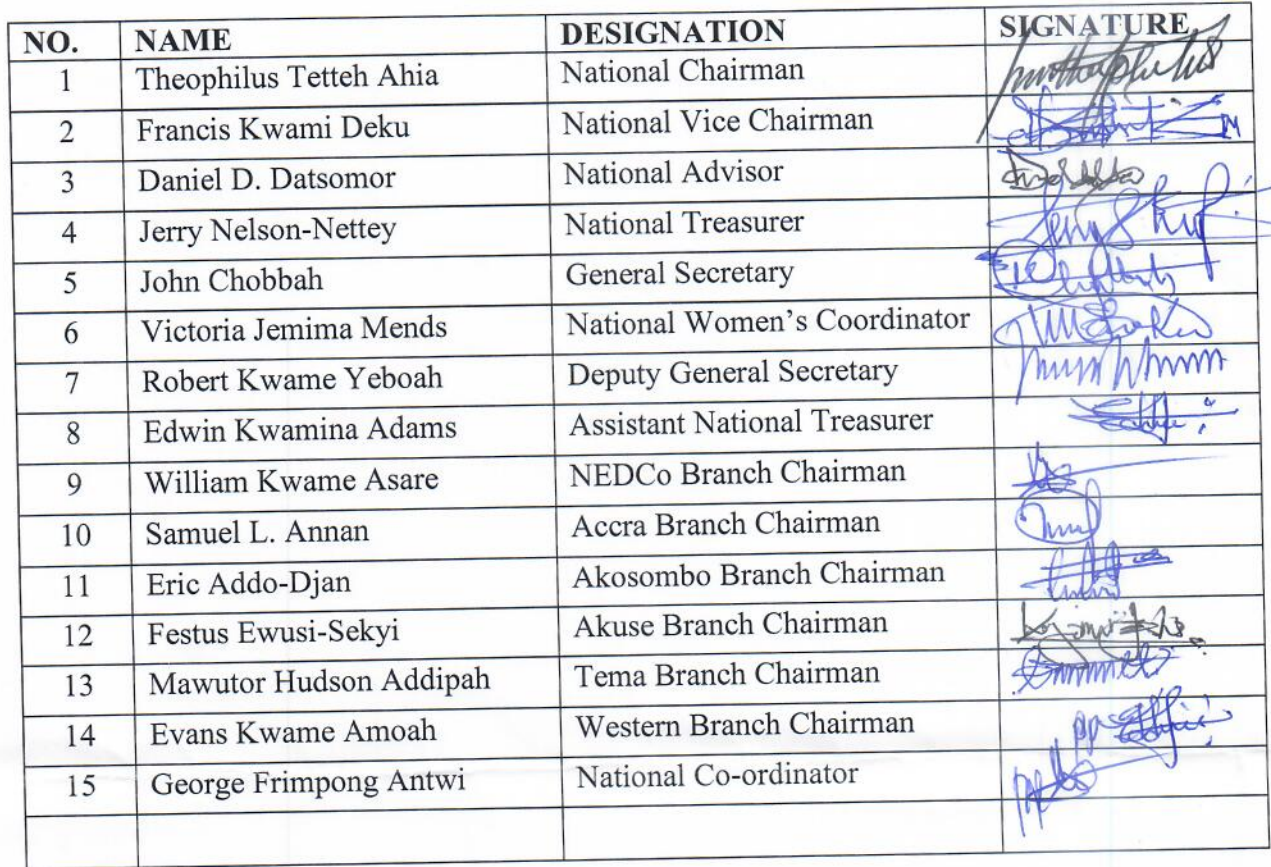 NO. NAME DESIGNATION SIGNATURE
1 Theophilus Tetteh Ahia National Chairman
2 Francis Kwami Deku National Vice Chairman
3 Daniel D. Datsomor National Advisor
4 Jerry Nelson-Nettey National Treasurer
5 John Chobbah General Secretary
6 Victoria Jemima Mends National Women's Coordinator
7 Robert Kwame Yeboah Deputy General Secretary
8 Edwin Kwamina Adams Assistant National Treasurer
9 William Kwame Asare NEDCo Branch Chairman
10 Samuel L. Annan Accra Branch Chairman
11 Eric Addo-Djan Akosombo Branch Chairman
12 Festus Ewusi-Sekyi Akuse Branch Chairman
13 Mawutor Hudson Addipah Tema Branch Chairman
14 Evans Kwame Amoah Western Branch Chairman
15 George Frimpong Antwi National Co-ordinator